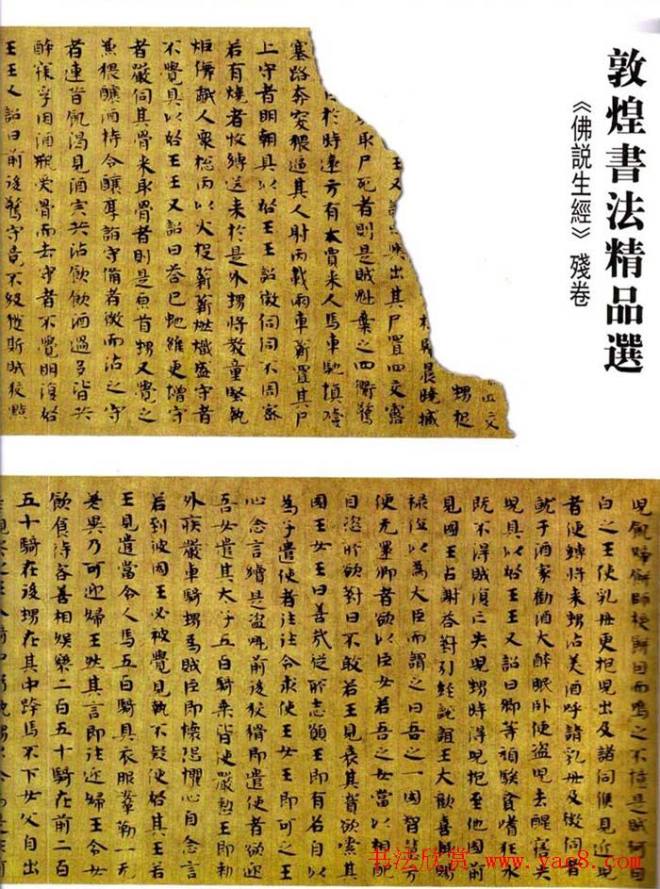 敦煌書法精品選
《佛説生經》殘卷
甥挹
晨曉
王又
與出其尸置四交露
取尸死者則是賊魁棄之四衢警
於時遠方有大賈來人馬車馳填噎
塞路奔突猥逼其人射鬧載兩車薪置其尸
上守者明朝具以啟王王詔微伺伺不周密
若有燒者收縛送來於是外甥將教童竪執
炬儛戲人衆總鬧以火投薪薪燃熾盛守者
不覺具以啟王王又詔曰若已虵維更增守
者嚴伺其骨來取骨者則是原首甥又覺之
兼猥釀酒特令釀厚詣守備者微而沽之守
者連昔飢渴見酒宗共沽飲飲酒過多皆共
醉寐俘因酒瓶受骨而去守者不覺明復啟
王王又詔曰前後警守竟不級獲斯賊狡黠
兒飢歸餅師授餅因而鳴之不是賊何因
白之王使乳母更抱兒出及諸伺候見近兒
者便縛將來甥沽美酒呼請乳母及微伺者
就于酒家勸酒大醉眠卧便盜兒去醒悟失
兒具以啟王王又詔曰卿等頑騃貪嗜狂水
既不得賊復亡失兒甥時得兒抱至他國前
見國王占謝荅對引經說誼王大歡喜輒賜
祿位以為大臣而謂之曰吾之一國智慧方
便无逮卿者欲以臣女若吾之女當以相配
自恣所欲對曰不敢若王見哀其實欲索某
國王女王曰善哉從所志願王即有名自以
為子遣使者往往令求使王女王即可之王
心念言續是盜魁前後狡猾即遣使者欲迎
吾女遣其太子五百騎乘皆使嚴整王即勑
外疾嚴車騎甥為賊臣即懷恐懼心自念言
若到彼國王必被覺見執不疑便啟其王若
王見遣當令人馬五百騎具衣服鞌勒一无
差異乃可迎婦王然其言即往迎婦王令女
飲食侍客善相娛樂二百五十騎在前二百
五十騎在後甥在其中跨馬不下女父自出
书法欣赏 www.yac8.com